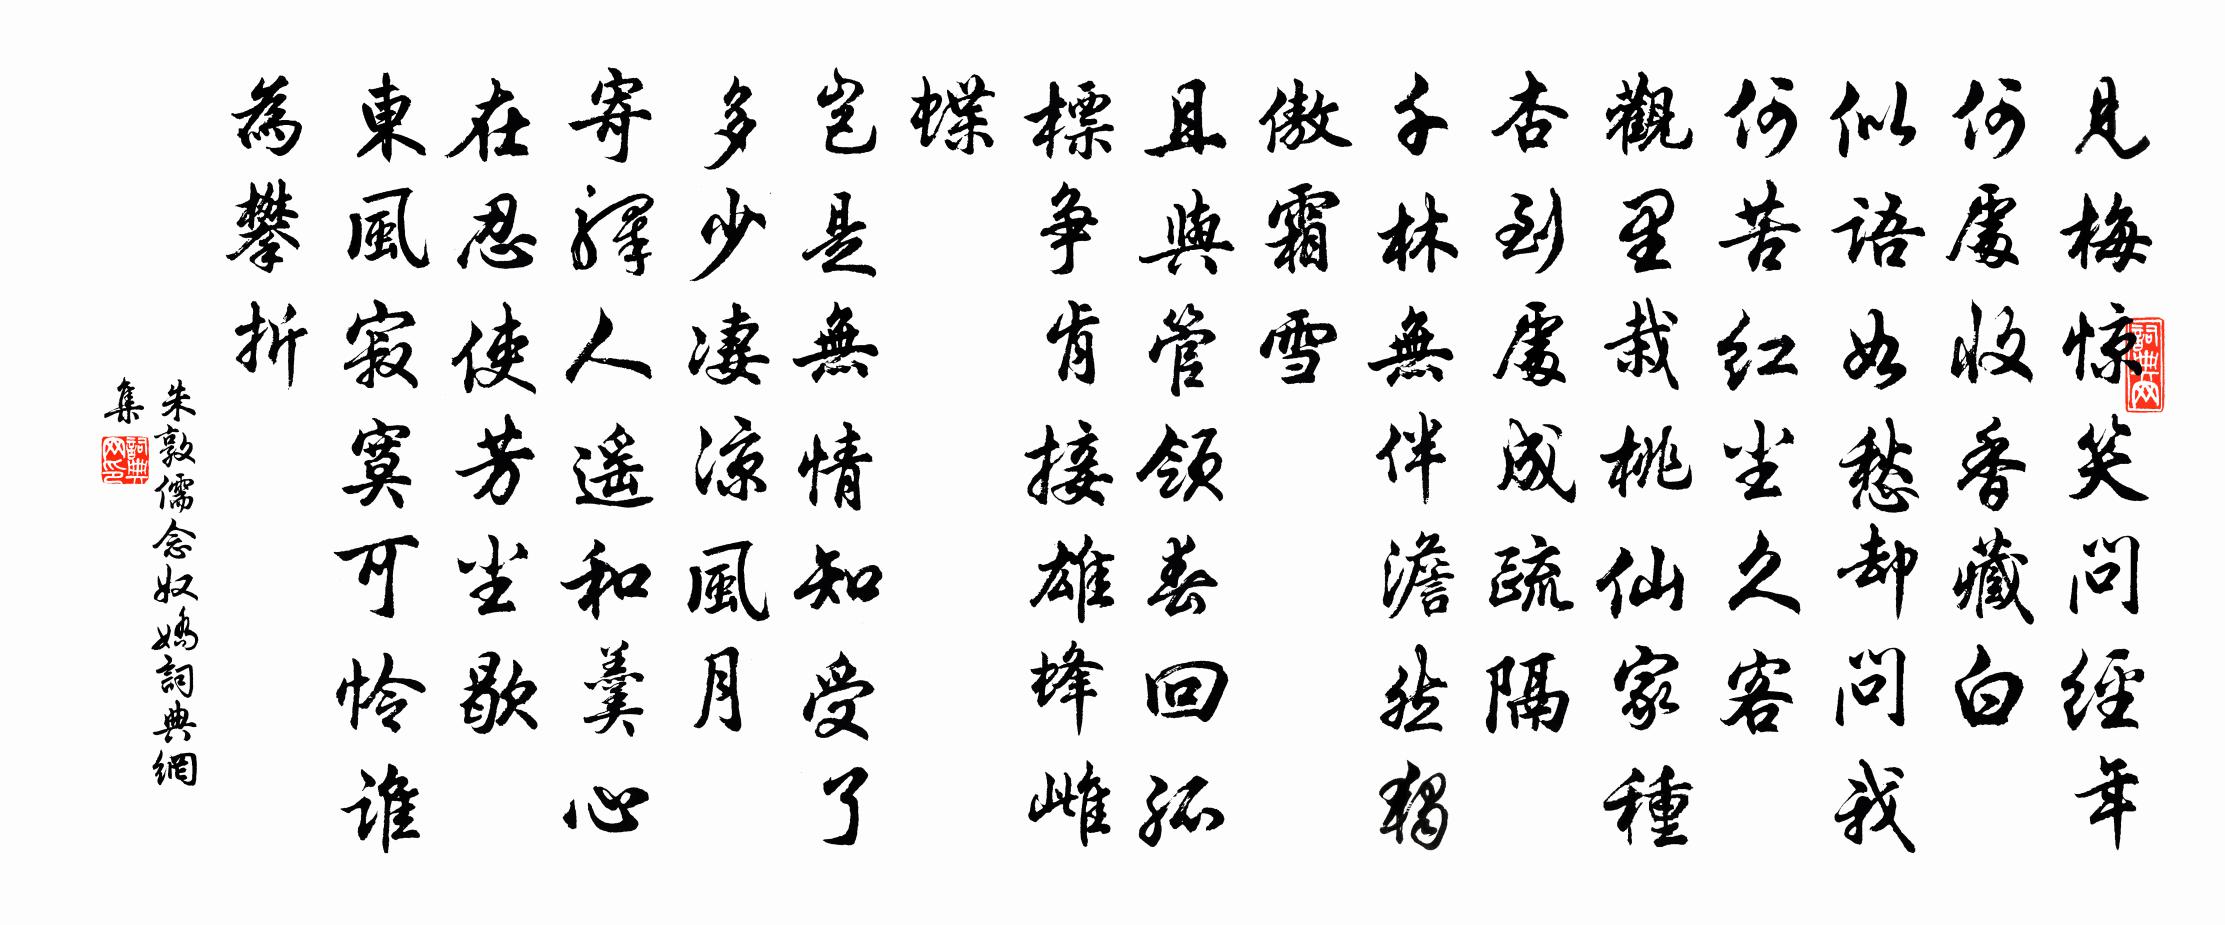 見梅惊笑問經年
何處收香藏白
似語如愁却問我
何苦红尘久客
觀里栽桃仙家種
杏到處成疏隔
千林無伴澹然獨
傲霜雪
且與管領春回孤
標争肯接雄蜂雌
蝶
岂是無情知受了
多少凄凉風月
寄驛人遥和羹心
在忍使芳尘歇
東風寂寞可怜誰
為攀折
朱敦儒念奴嬌詞典網
集
詞典网
詞典
网印